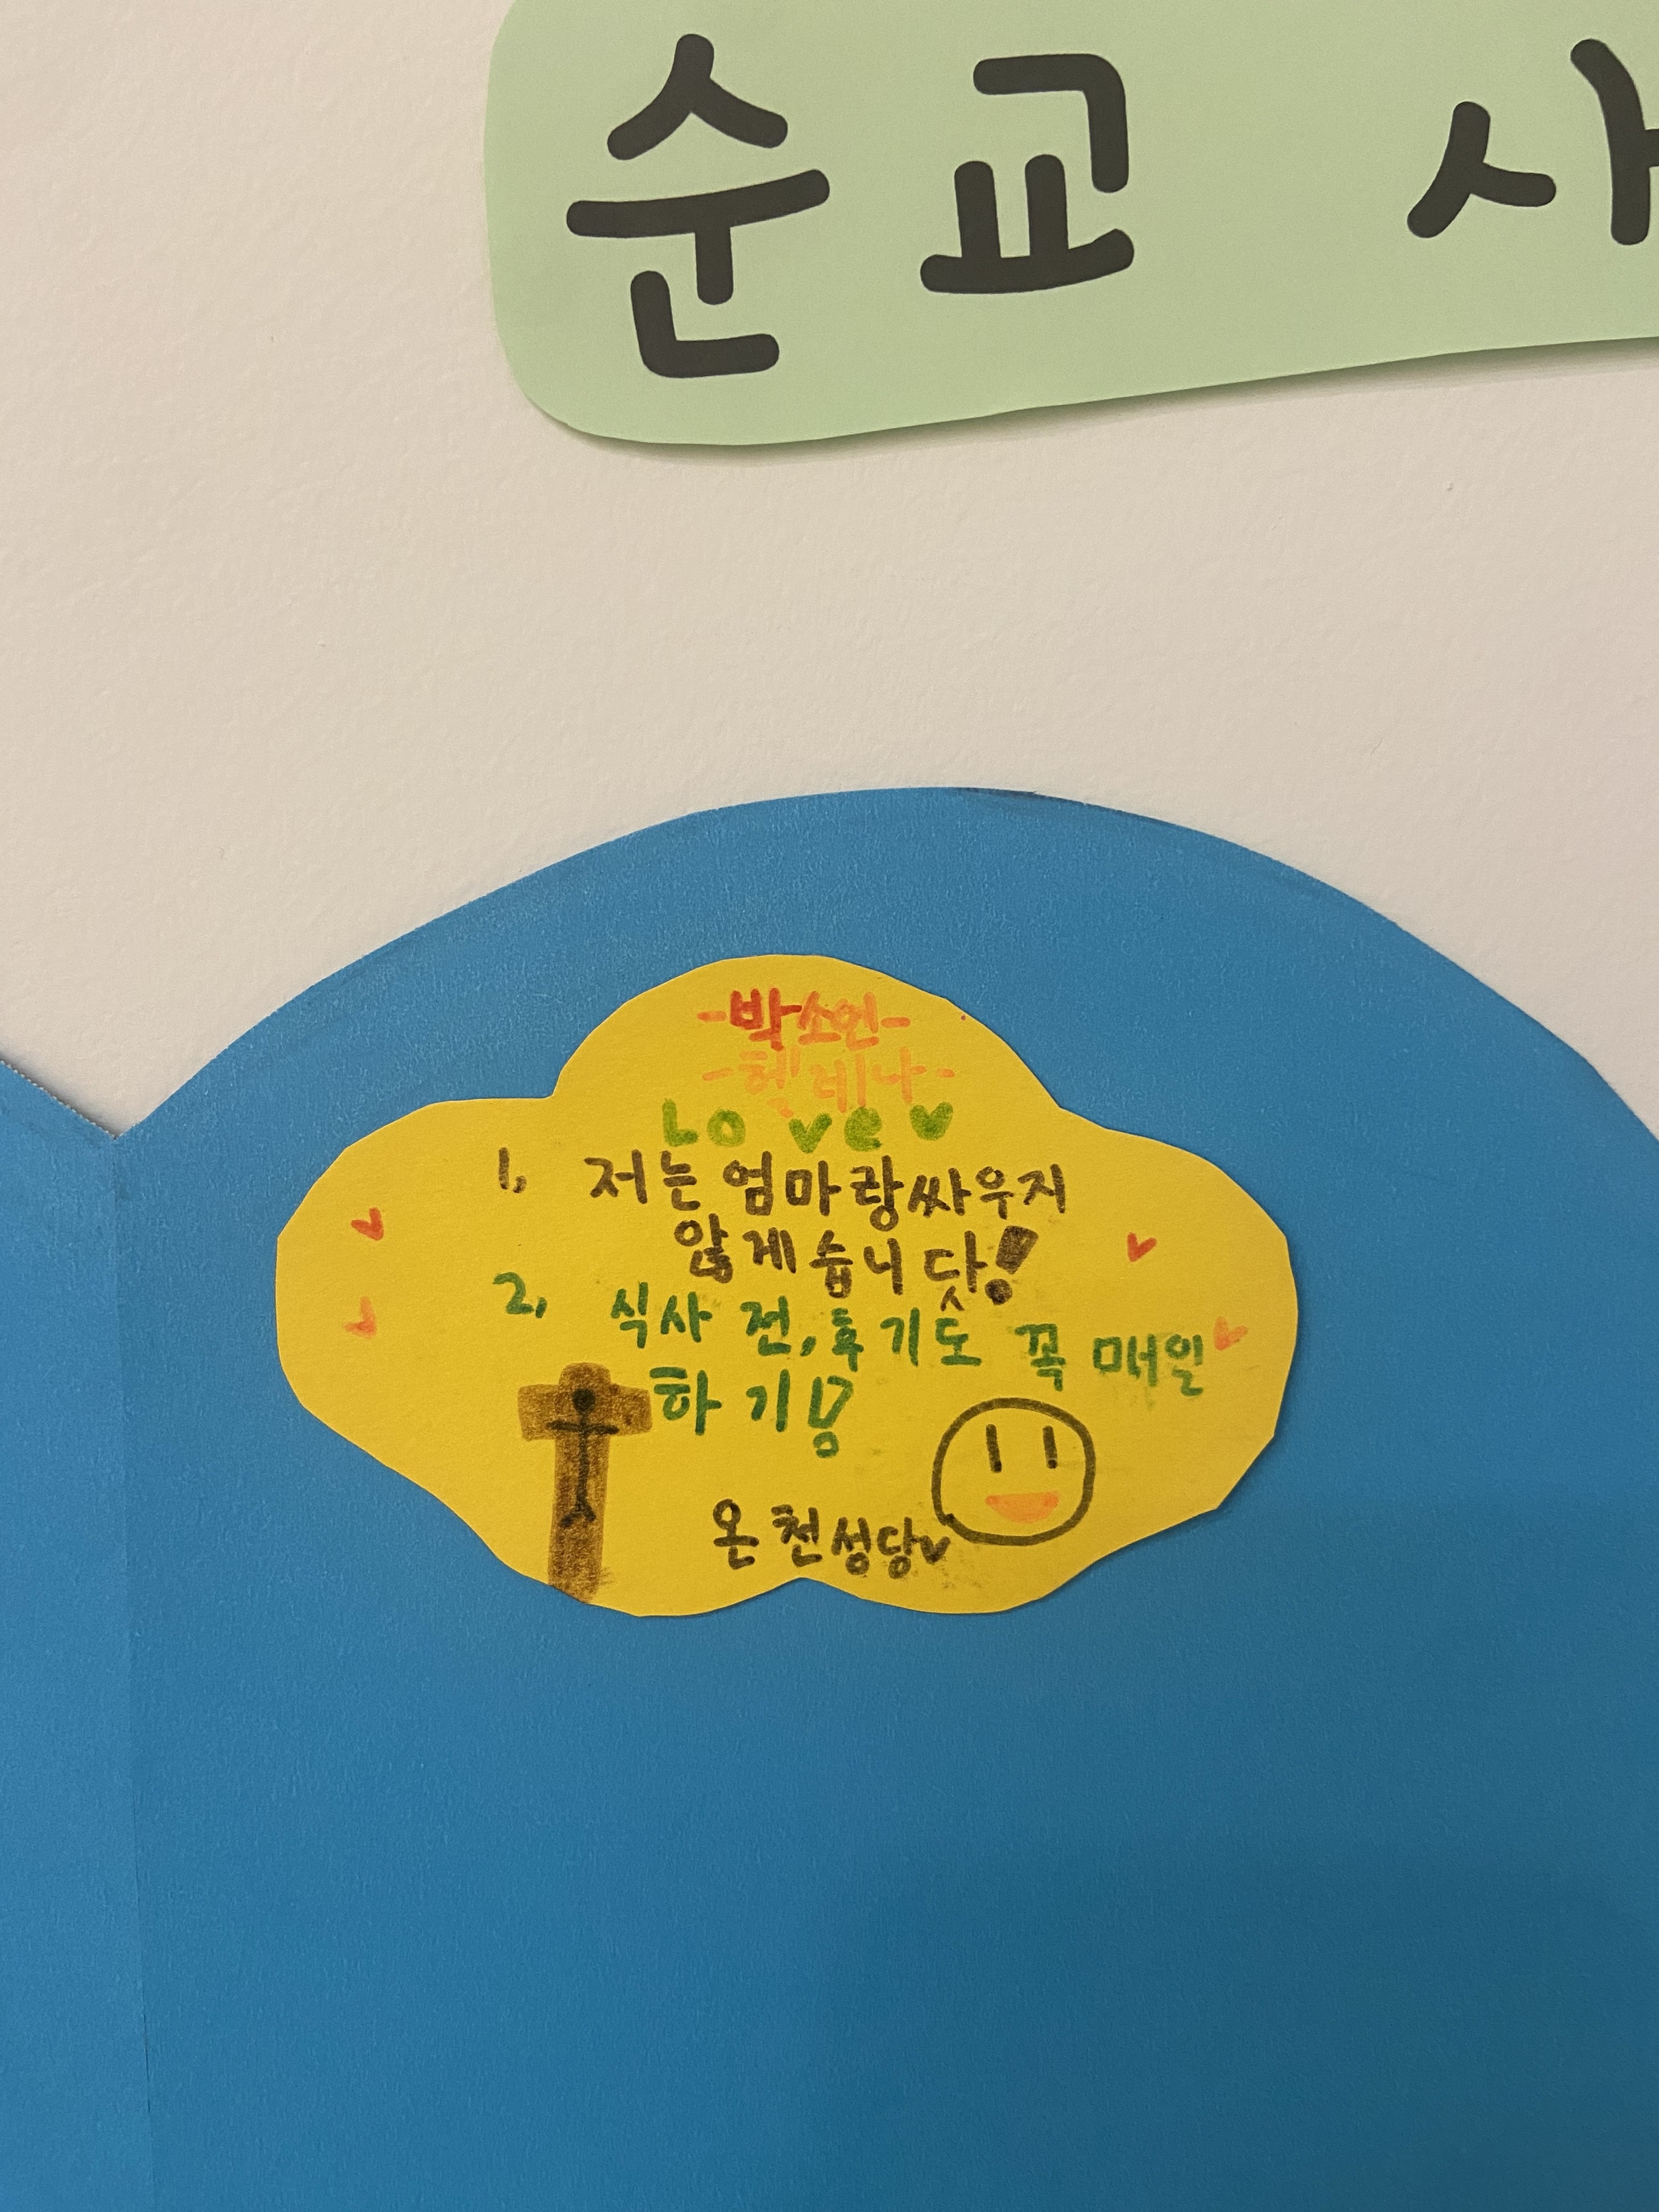 순교 사
-박소언-
-헬레나-
Love♥
1, 저는 엄마랑싸우지
않게습니닷!
2, 식사 전,후기도 꼭 매일
하기!
온천성당♥